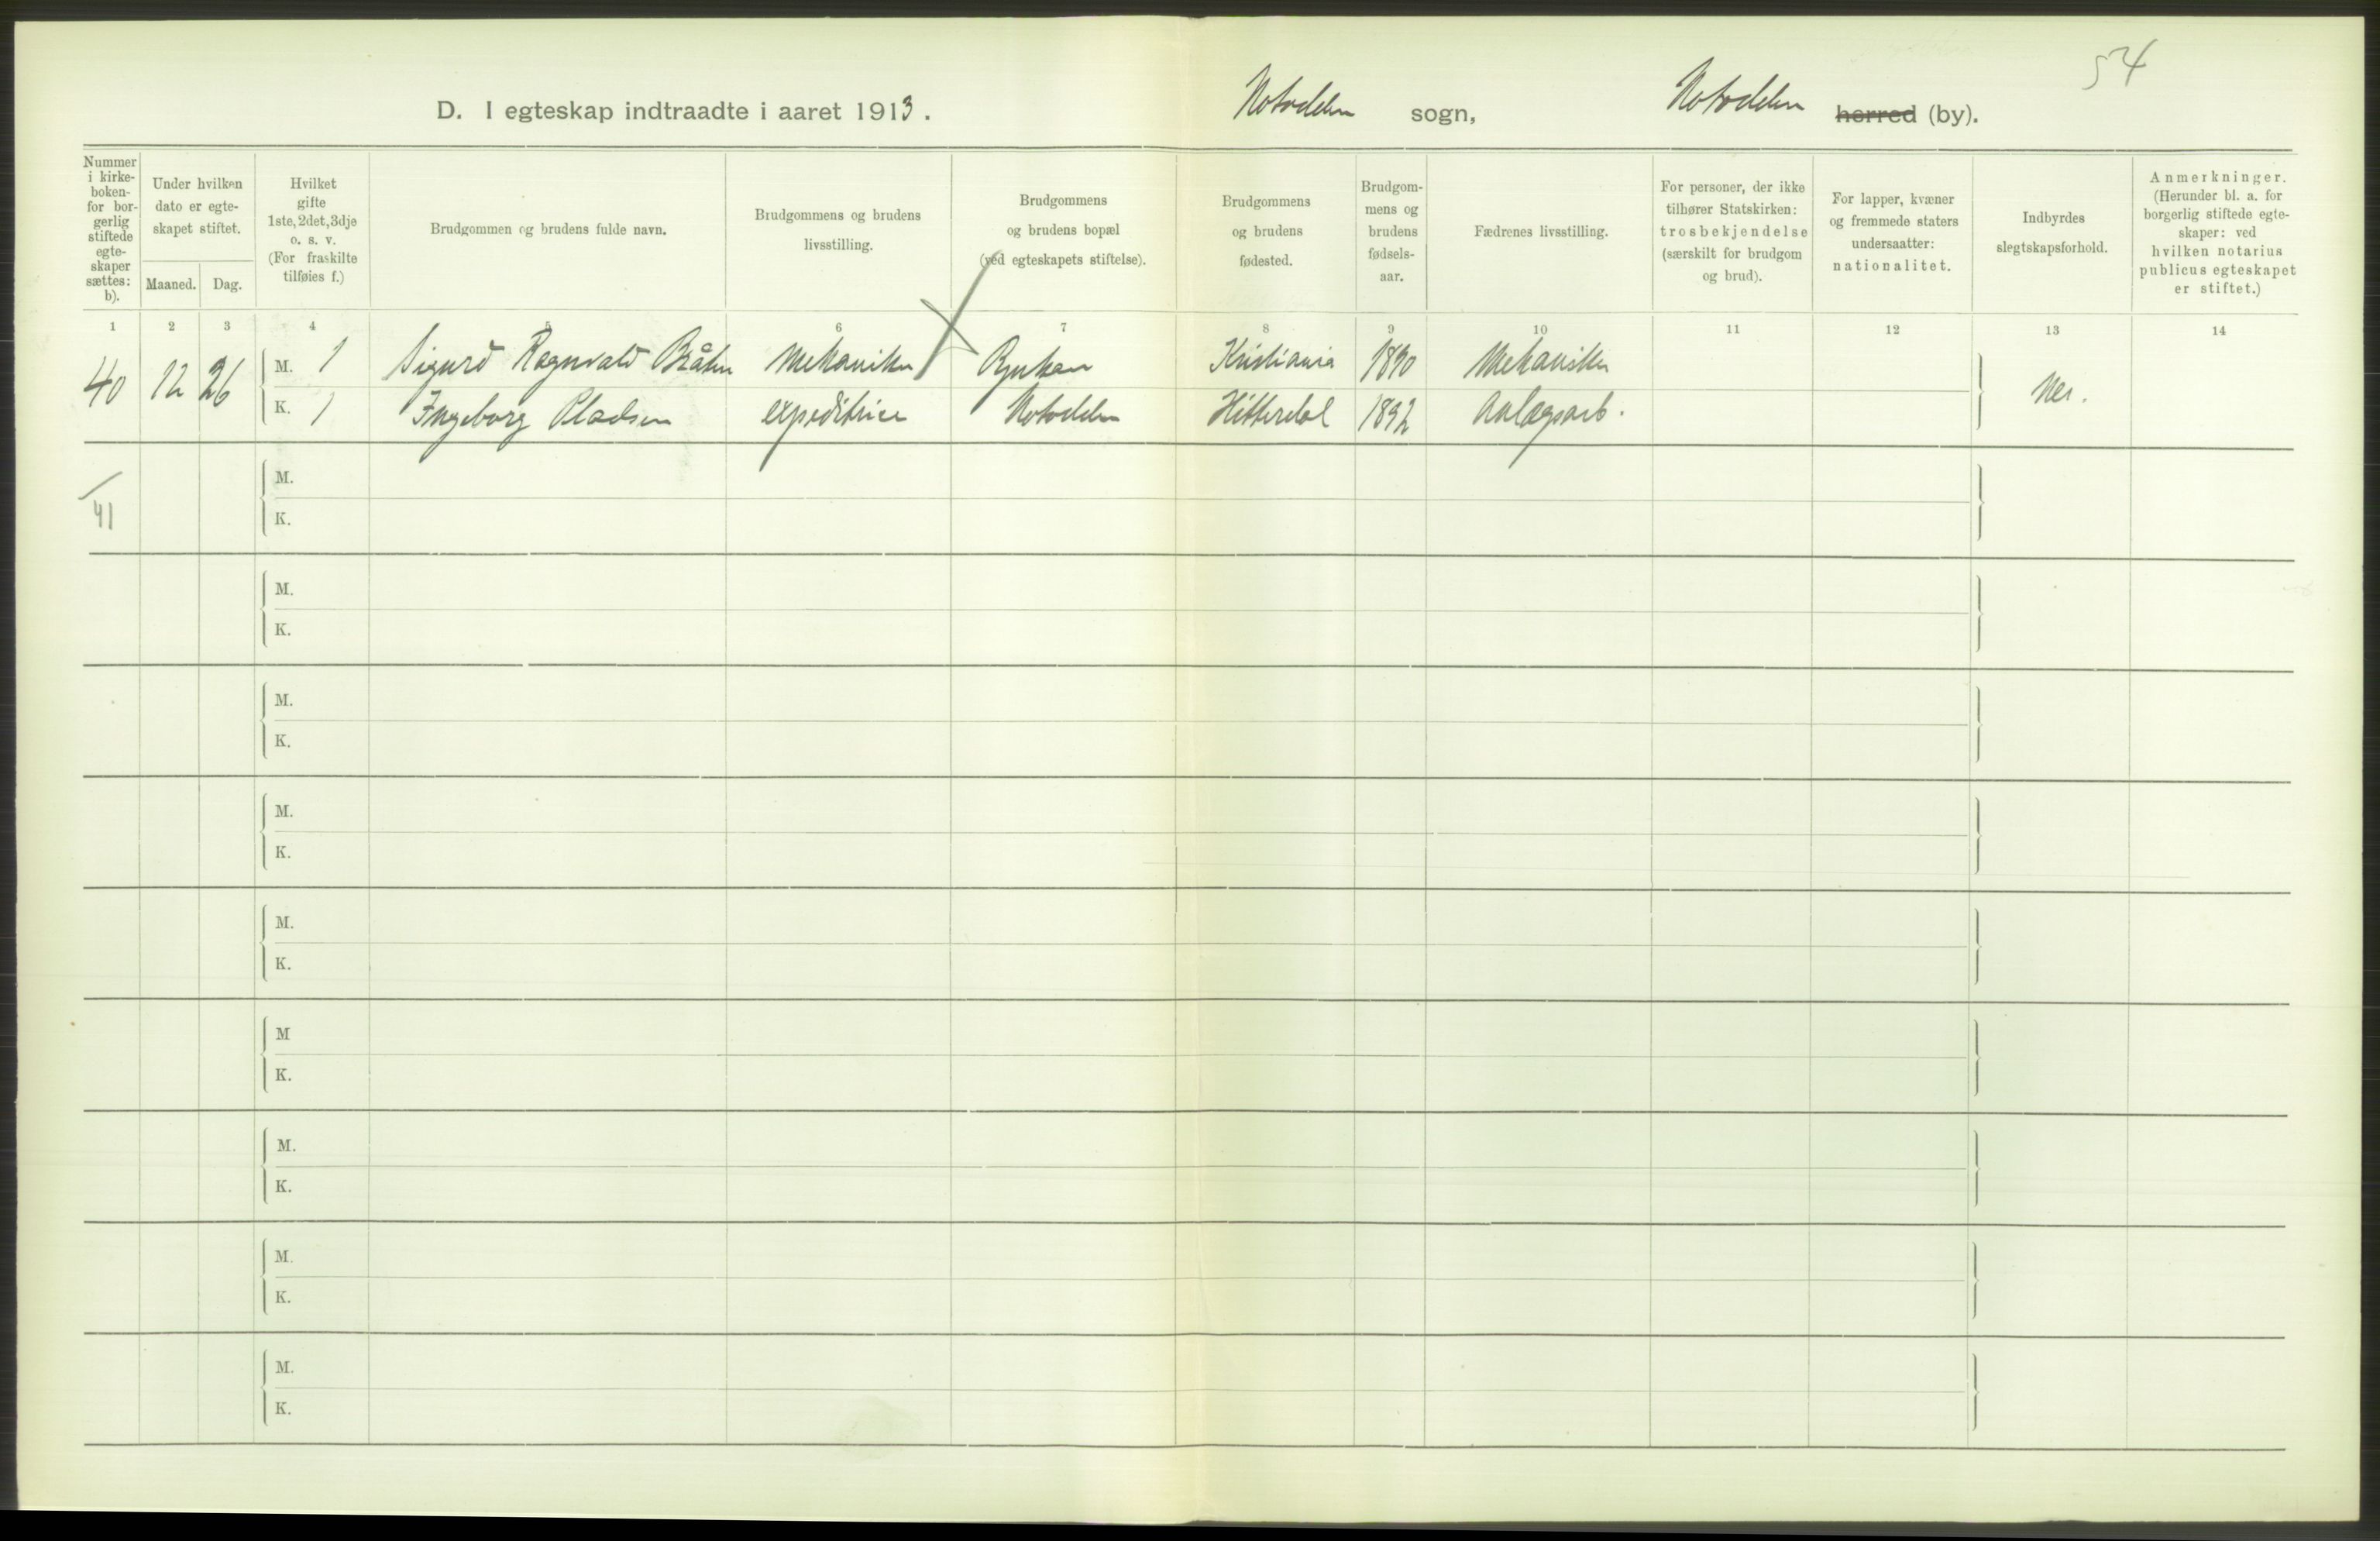 54
D. I egteskap indtraadte i aaret 1913. Notodden sogn, Notodden herred (by).
Nummer i kirke-boken- for bor-gerlig stiftede egte-skaper sættes: b).
Under hvilken dato er egte-skapet stiftet.
Maaned. Dag.
Hvilket gifte 1ste, 2det, 3dje o. s. v. (For fraskilte tilføies f.)
Brudgommen og brudens fulde navn.
Brudgommens og brudens livsstilling.
Brudgommens og brudens bopæl (ved egteskapets stiftelse).
Brudgommens og brudens fødested.
Brudgom-mens og brudens fødsels-aar.
Fædrenes livsstilling.
For personer, der ikke tilhører Statskirken: trosbekjendelse (særskilt for brudgom og brud).
For lapper, kvæner og fremmede staters undersaatter: nationalitet.
Indbyrdes slegtskapsforhold.
Anmerkninger. (Herunder bl. a. for borgerlig stiftede egte-skaper: ved hvilken notarius publicus egteskapet er stiftet.)
1 2 3 4 5 6 7 8 9 10 11 12 13 14
40 12 26 M. 1 Sigurd Ragnvald Bråten Mekaniker Rjukan Kristiania 1890 Mekaniker Nei.
K. 1 Ingeborg Pladsen expeditrice Notodden Hitterdal 1892 Anlægsarb.
41
M.
K.
M.
K.
M.
K.
M.
K.
M.
K.
M
K.
M.
K.
M.
K.
M.
K.